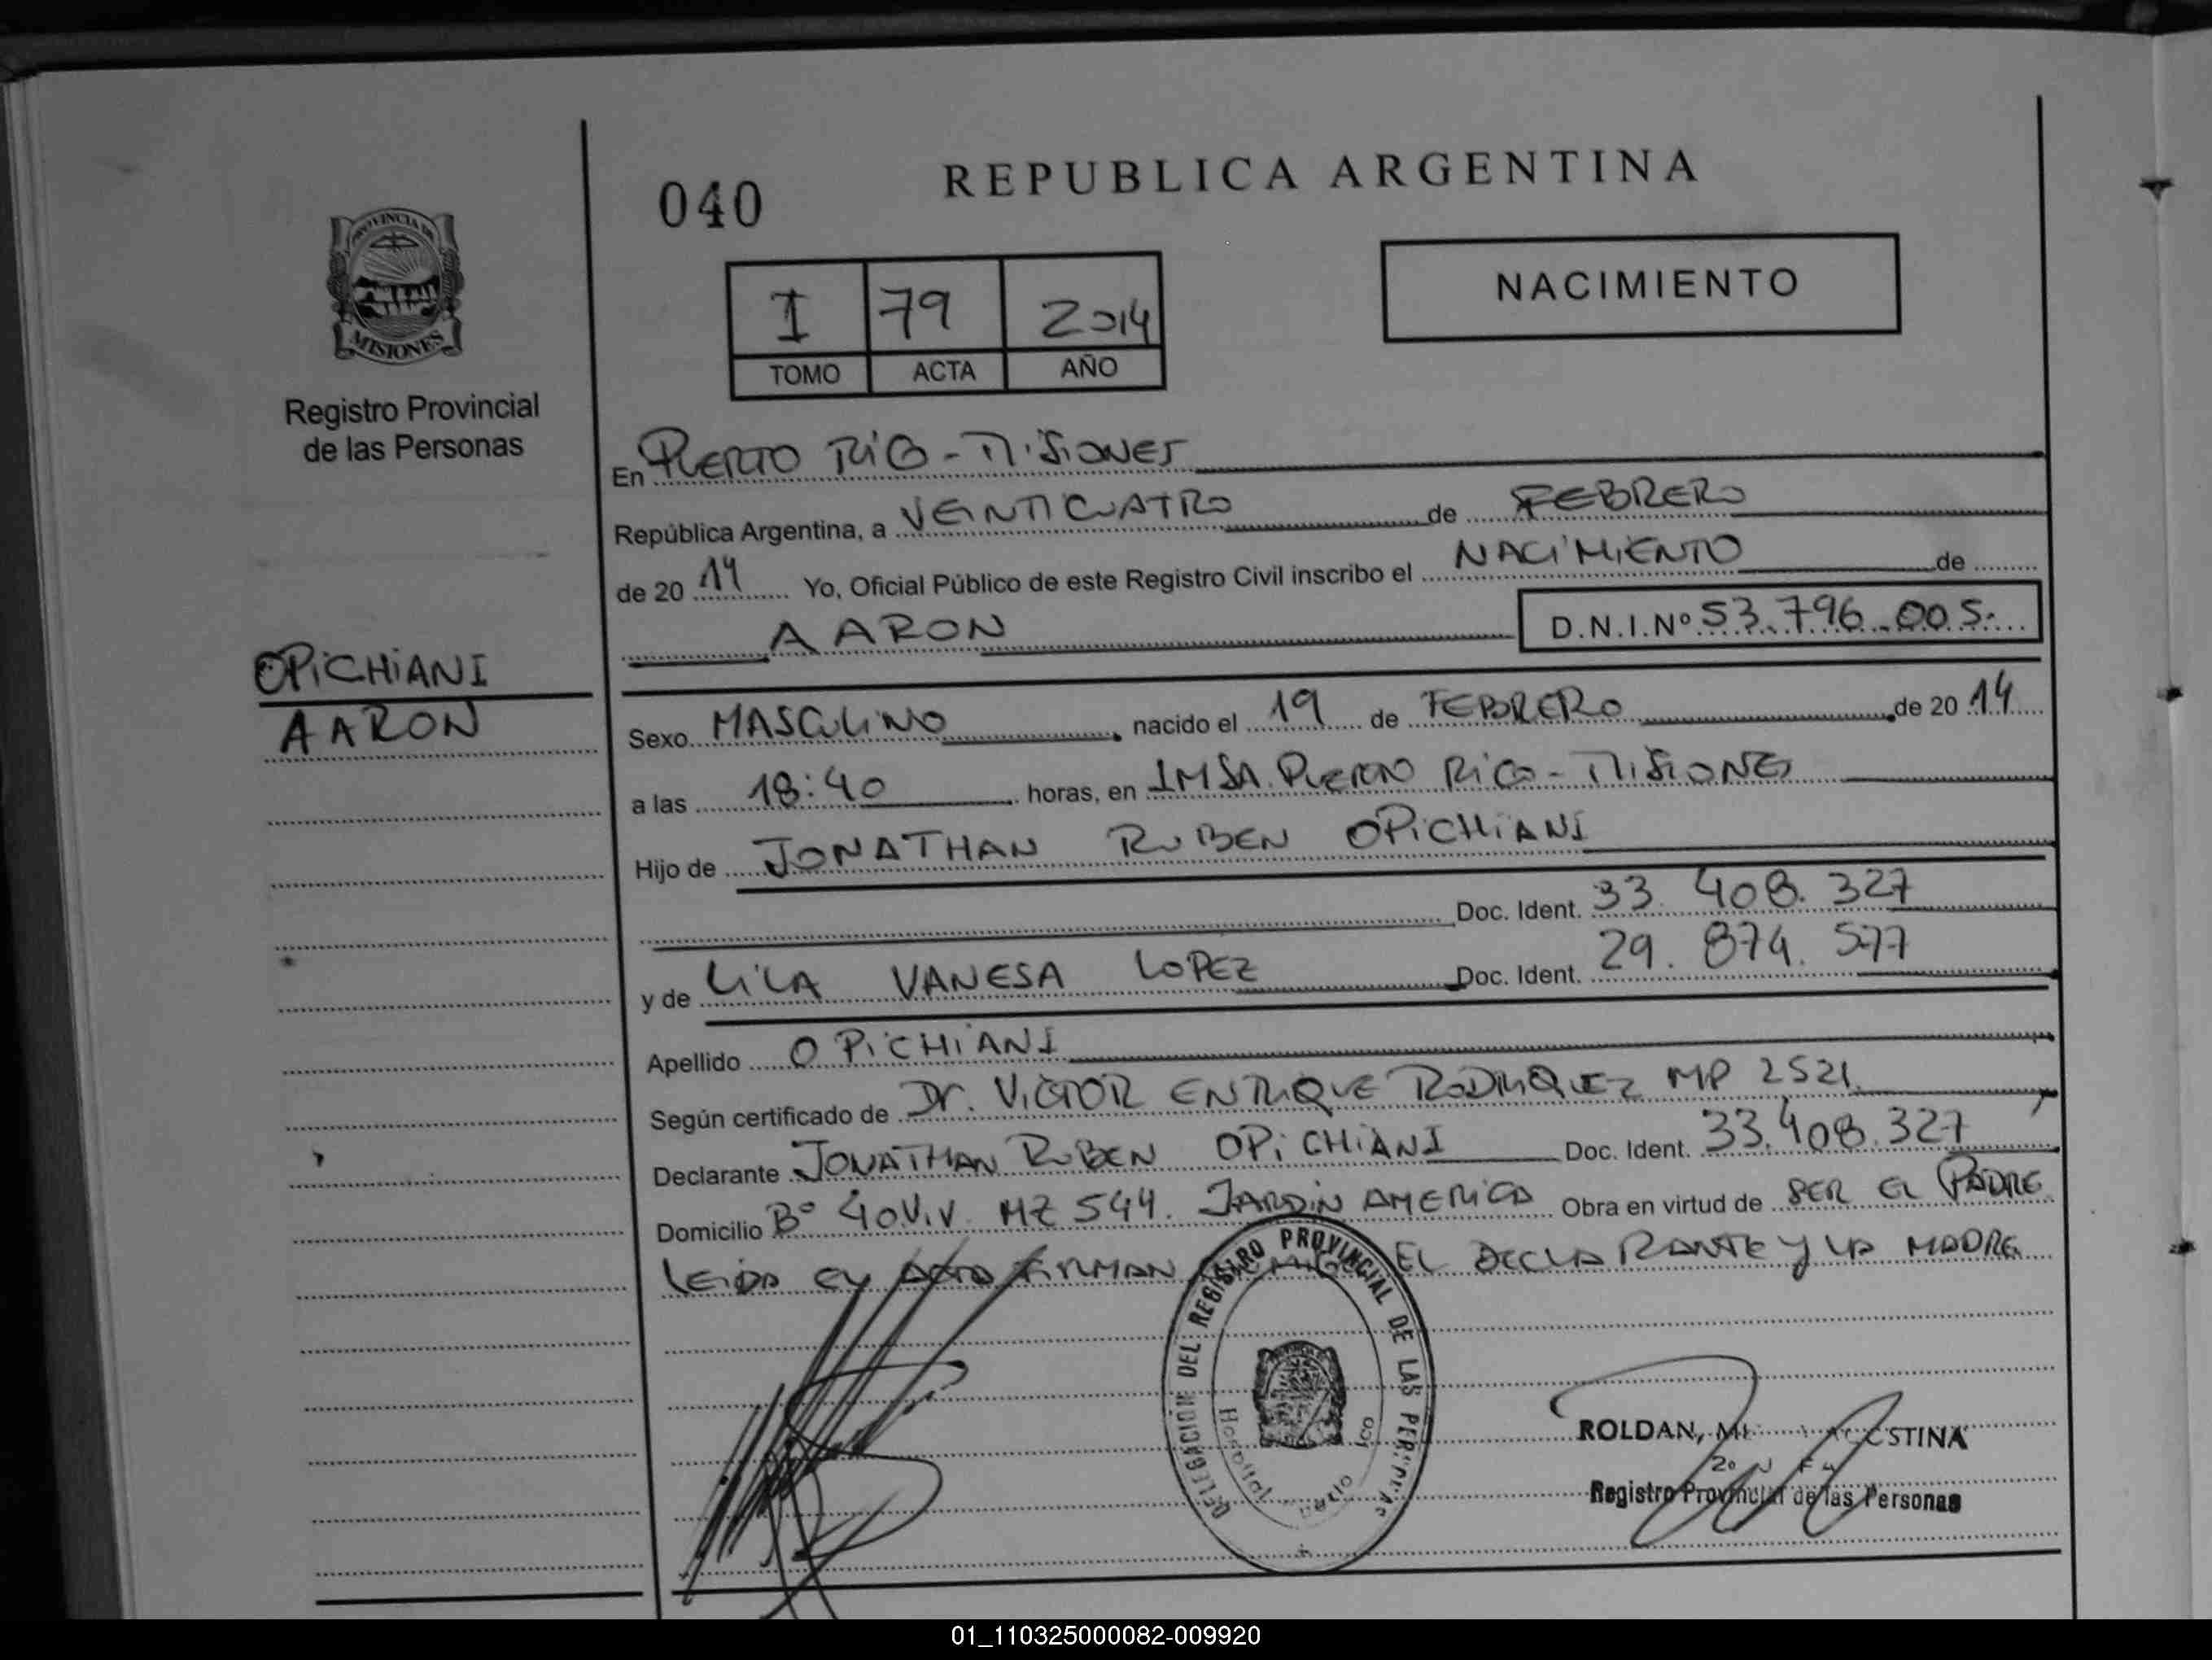 REPUBLICA ARGENTINA
040
NACIMIENTO
PROVINCIA DE
MISIONES
Registro Provincial
de las Personas
I 79 2014
TOMO ACTA AÑO
En PUERTO RICO - MISIONES
República Argentina, a VEINTICUATRO de FEBRERO
de 20 14 Yo, Oficial Público de este Registro Civil inscribo el NACIMIENTO de
AARON D.N.I.Nº 53.796.005.
OPICHIANI
AARON
Sexo MASCULINO, nacido el 19 de FEBRERO de 20 14
a las 18:40 horas, en IMSA. PUERTO RICO - MISIONES
Hijo de JONATHAN RUBEN OPICHIANI
Doc. Ident. 33.408.327
y de LILA VANESA LOPEZ Doc. Ident. 29.874.577
Apellido OPICHIANI
Según certificado de Dr. VICTOR ENRIQUE RODRIQUEZ MP 2521.
Declarante JONATHAN RUBEN OPICHIANI Doc. Ident. 33.408.327
Domicilio Bº 40 Viv. MZ 544. JARDIN AMERICA Obra en virtud de SER EL PADRE
LEIDA EL ACTA FIRMAN CONMIGO EL DECLARANTE Y LA MADRE
DELEGACION DEL REGISTRO PROVINCIAL DE LAS PERSONAS
Hospital
ROLDAN,
Registro Provincial de las Personas
01_110325000082-009920